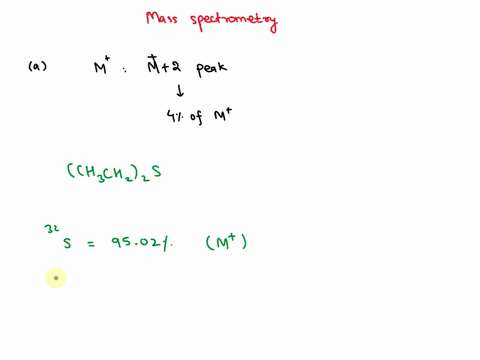 Mass spectrometry
(a) M⁺ : M⁺+2 peak
↓
4% of M⁺
(CH₃CH₂)₂S
³²S = 95.02% (M⁺)